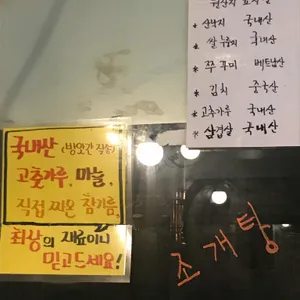 원산지 표시판
* 산낙지 국내산
* 쌀, 누룽지 국내산
* 쭈꾸미 베트남산
* 김치 중국산
* 고추가루 국내산
* 삼겹살 국내산
국내산 (방앗간 직송)
고춧가루, 마늘,
직접 짜온 참기름,
최상의 재료이니
믿고드세요!
조개탕